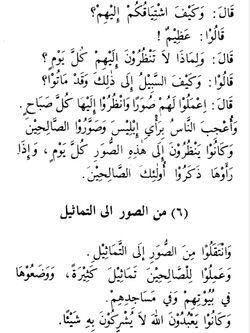 قَالَ: وَكَيْفَ اشْتِيَاقُكُمْ إِلَيْهِمْ؟
قَالُوْا: عَظِيْمٌ !
قَالَ: وَلِمَاذَا لَا تَنْظُرُوْنَ إِلَيْهِمْ كُلَّ يَوْمٍ؟
قَالُوْا: وَكَيْفَ السَّبِيْلُ إِلَى ذٰلِكَ وَقَدْ مَاتُوْا؟
قَالَ: اِعْمَلُوْا لَهُمْ صُوَرًا وَانْظُرُوْا إِلَيْهَا كُلَّ صَبَاحٍ.
وَأُعْجِبَ النَّاسُ بِرَأْيِ إِبْلِيْسَ وَصَوَّرُوْا الصَّالِحِيْنَ
وَكَانُوْا يَنْظُرُوْنَ إِلَى هٰذِهِ الصُّوَرِ كُلَّ يَوْمٍ، وَإِذَا
رَأَوْهَا ذَكَرُوْا أُولٰئِكَ الصَّالِحِيْنَ.
(٦) من الصور الى التماثيل
وَانْتَقَلُوْا مِنَ الصُّوَرِ إِلَى التَّمَاثِيْلِ.
وَعَمِلُوْا لِلصَّالِحِيْنَ تَمَاثِيْلَ كَثِيْرَةً، وَوَضَعُوْهَا
فِيْ بُيُوْتِهِمْ وَفِيْ مَسَاجِدِهِمْ.
وَكَانُوْا يَعْبُدُوْنَ اللّٰهَ لَا يُشْرِكُوْنَ بِهِ شَيْئًا.